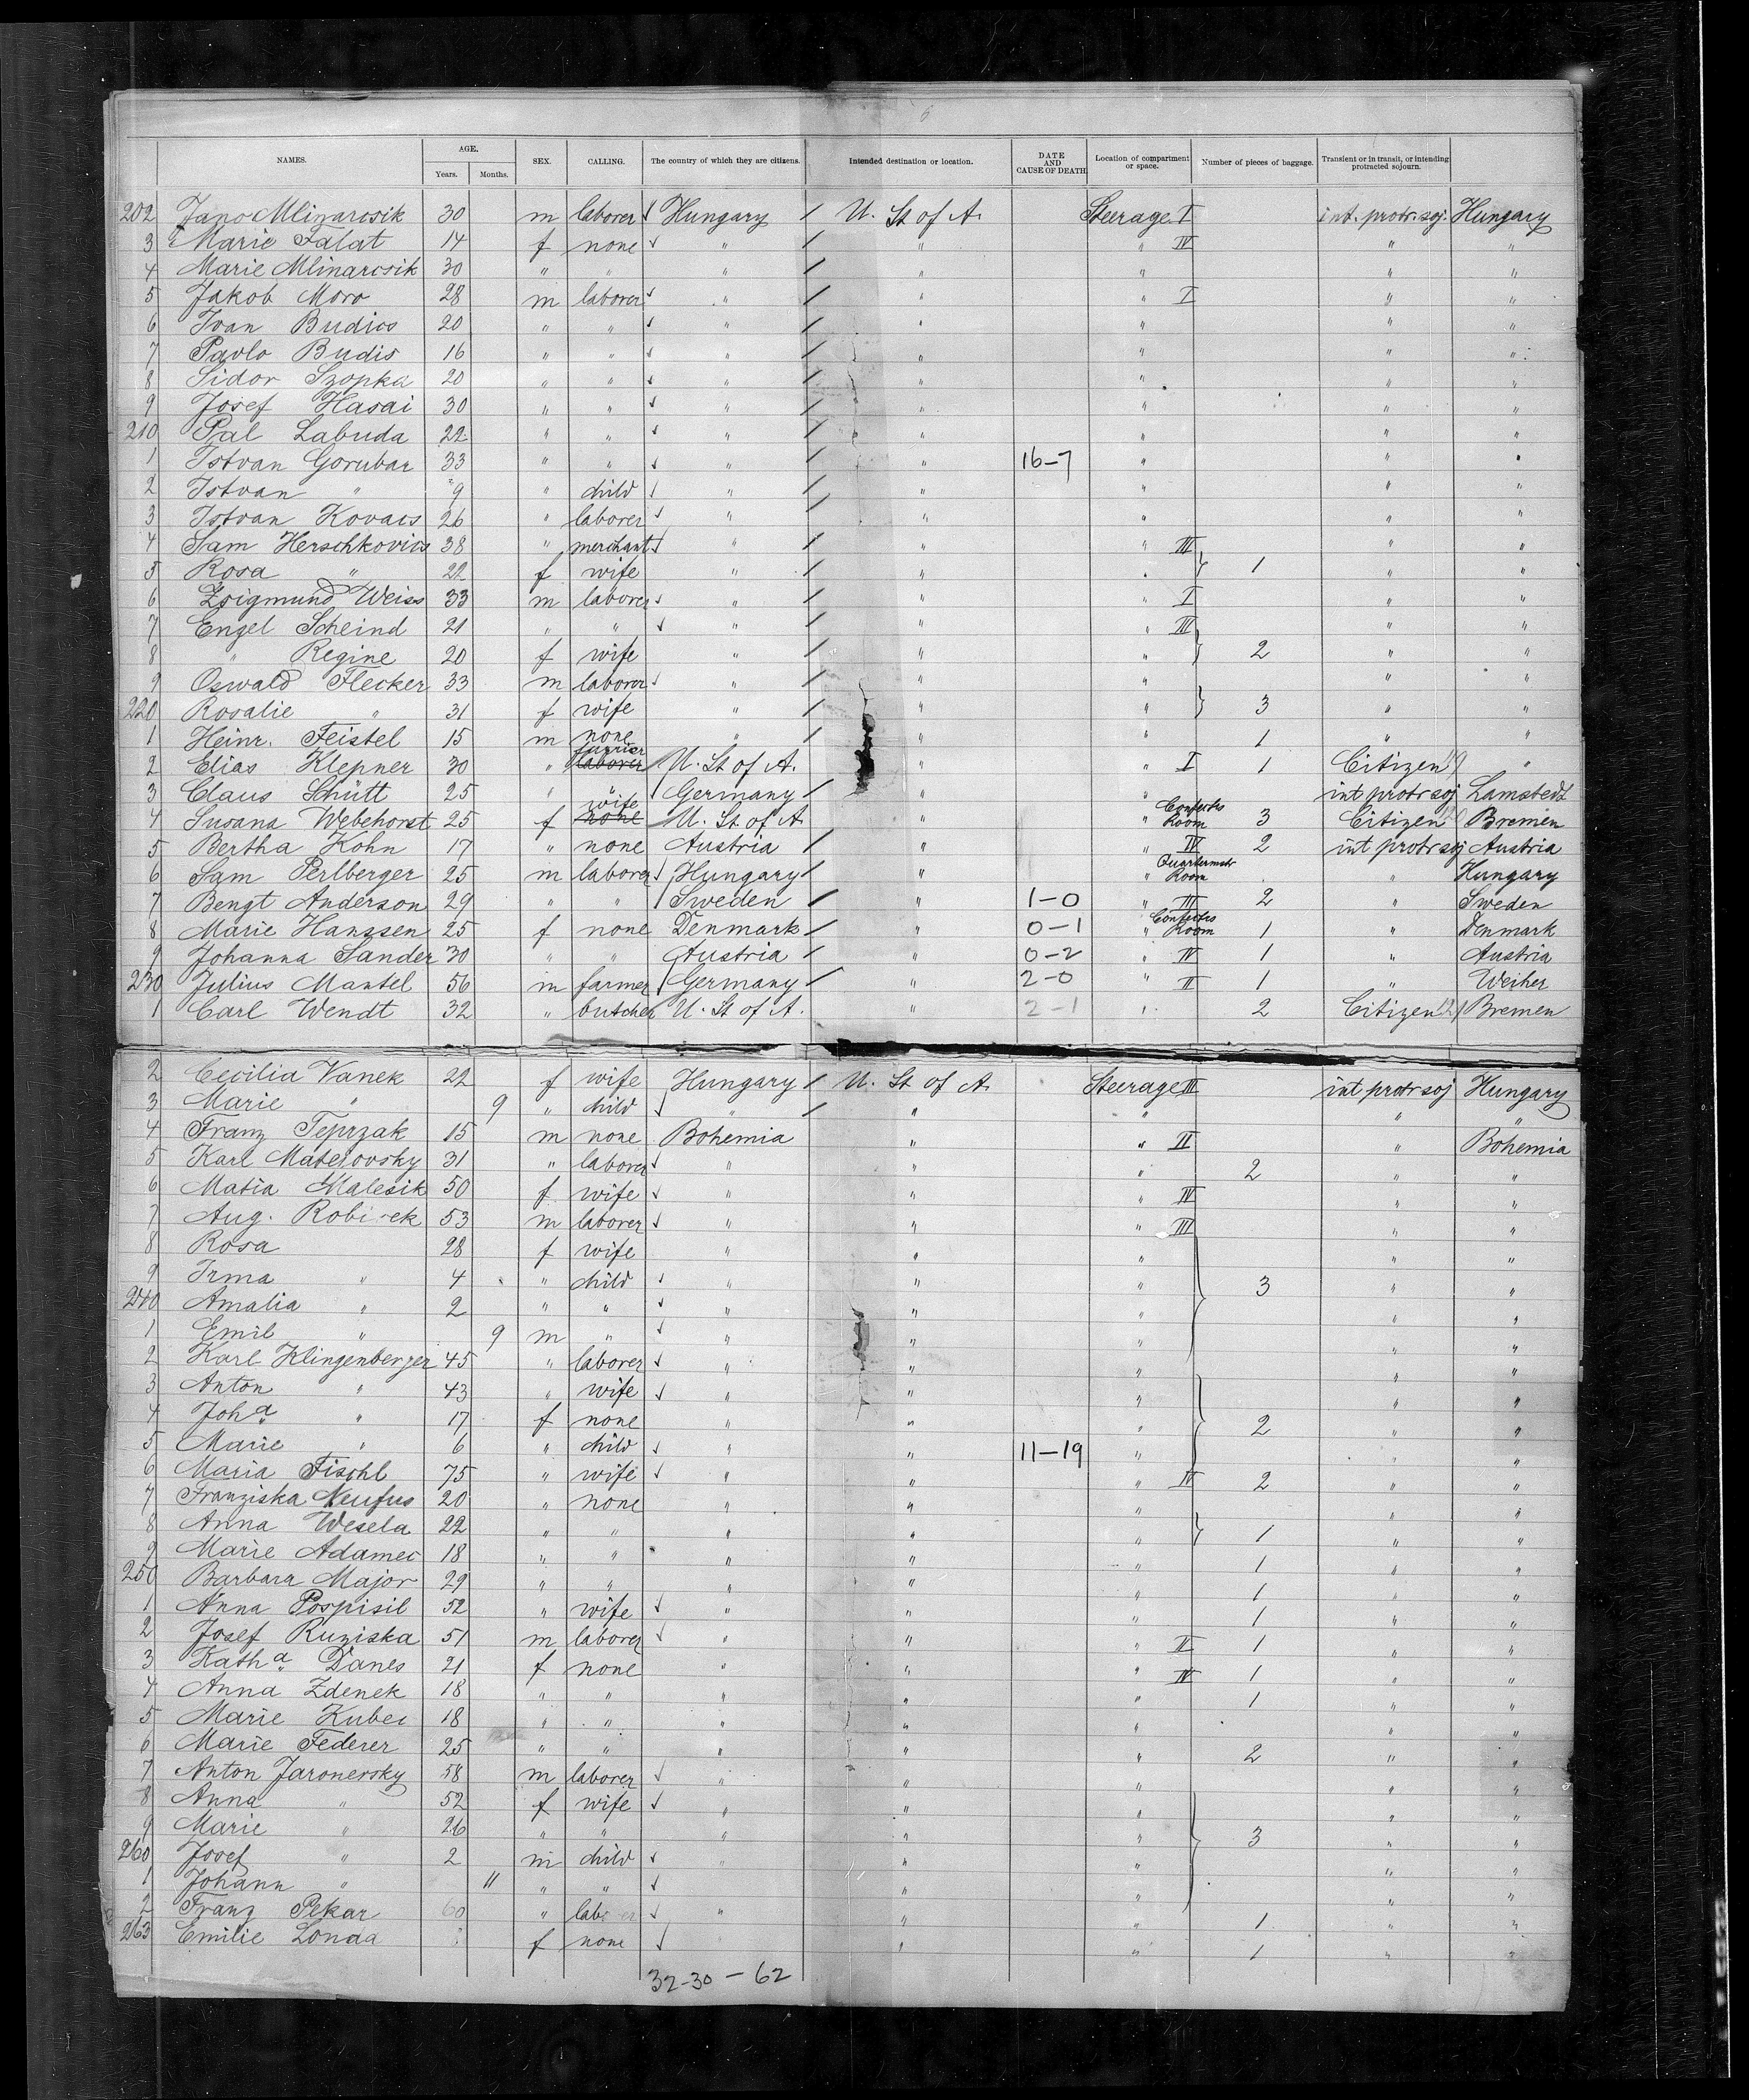 NAMES. AGE. Years. Months. SEX. CALLING. The country of which they are citizens. Intended destination or location. DATE AND CAUSE OF DEATH. Location of compartment or space. Number of pieces of baggage. Transient or in transit, or intending protracted sojourn.
202 Jano Mlinarcsik 30 m laborer Hungary / U. St of A. Steerage I int. protr. soj. Hungary
3 Marie Falat 14 f none " / " " IV " "
4 Marie Mlinarcsik 30 " " " / " " " "
5 Jakob Moro 28 m laborer " / " " I " "
6 Ivan Budics 20 " " " / " " " "
7 Pavlo Budis 16 " " " / " " " "
8 Sidor Szopka 20 " " " / " " " "
9 Josef Hasai 30 " " " / " " " "
210 Pal Labuda 22 " " " / " " " "
1 Istvan Gorubar 33 " " " / " 16-7 " " "
2 Istvan " 9 " child " / " " " "
3 Istvan Kovacs 26 " laborer " / " " " "
4 Sam Herschkovics 38 " merchant " / " " III " "
5 Rosa " 22 f wife " / " " 1 " "
6 Zsigmund Weiss 33 m laborer " / " " I " "
7 Engel Scheind 21 " " " / " " III " "
8 " Regine 20 f wife " / " " 2 " "
9 Oswald Flecker 33 m laborer " / " " " "
220 Rosalie " 31 f wife " / " " 3 " "
1 Heinr. Feistel 15 m none " / " " 1 " "
2 Elias Klepner 30 " furrier laborer U. St of A. " " I 1 Citizen "
3 Claus Schütt 25 " " Germany / " " int protr soj Lamstedt
4 Susana Webehorst 25 f wife none U. St of A " " Room 3 Citizen Bremen
5 Bertha Kohn 17 " none Austria / " " IV 2 int protr soj Austria
6 Sam Perlberger 25 m laborer Hungary / " " Quartermstr Room " Hungary
7 Bengt Anderson 29 " " Sweden / " 1-0 " III 2 " Sweden
8 Marie Hanssen 25 f none Denmark / " 0-1 " Room 1 " Denmark
9 Johanna Sander 30 " " Austria / " 0-2 " IV 1 " Austria
230 Julius Mantel 56 m farmer Germany / " 2-0 " II 1 " Weiher
1 Carl Wendt 32 " butcher U. St of A. " 2-1 " 2 Citizen Bremen
2 Cecilia Vanek 22 f wife Hungary / U. St of A. Steerage III int protr soj Hungary
3 Marie " 9 " child " / " " " "
4 Franz Teprzak 15 m none Bohemia " " II " Bohemia
5 Karl Matejovsky 31 " laborer " " " 2 " "
6 Matia Malesik 50 f wife " " " IV " "
7 Aug. 53 m laborer " " " III " "
8 Rosa 28 f wife " " " " "
9 Irma " 4 " child " " " 3 " "
240 Amalia " 2 " " " " " " "
1 Emil " 9 m " " " " " "
2 Karl Klingenberger 45 " laborer " " " " "
3 Anton " 43 " wife " " " " "
4 Joha " 17 f none " " " 2 " "
5 Marie " 6 " child " " 11-19 " " "
6 Maria Fischl 75 " wife " " " IV 2 " "
7 Franziska Neufus 20 " none " " " " "
8 Anna Wesela 22 " " " " " 1 " "
9 Marie Adamec 18 " " " " " 1 " "
250 Barbara Major 29 " " " " " 1 " "
1 Anna Pospisil 52 " wife " " " 1 " "
2 Josef Ruziska 51 m laborer " " " II 1 " "
3 Katha Danes 21 f none " " " IV 1 " "
4 Anna Zdenek 18 " " " " " 1 " "
5 Marie Kubec 18 " " " " " " "
6 Marie Federer 25 " " " " " 2 " "
7 Anton Jaronersky 58 m laborer " " " " "
8 Anna " 52 f wife " " " " "
9 Marie " 26 " " " " " 3 " "
260 Josef " 2 m child " " " " "
1 Johann " 11 " " " " " "
2 Franz Pekar 60 " laborer " " " 1 " "
263 Emilie Londa f none " " 1 " "
32-30-62